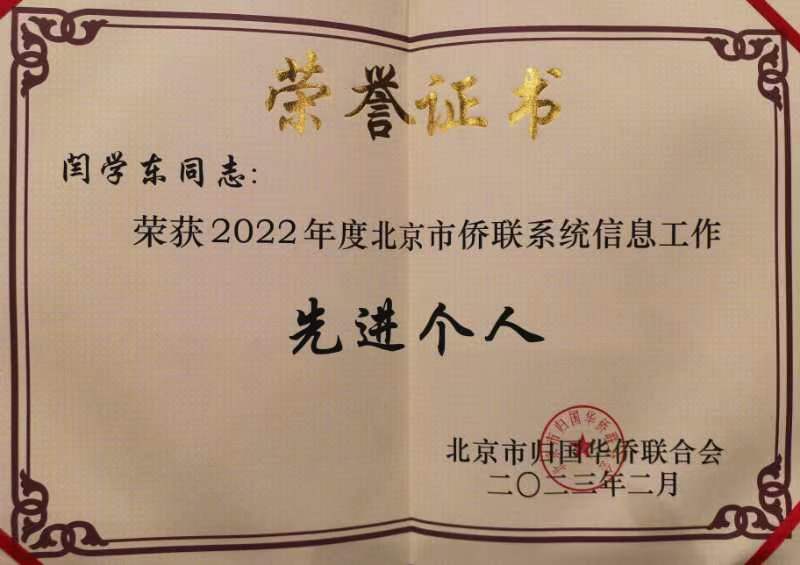 荣誉证书
闫学东同志:
荣获2022年度北京市侨联系统信息工作
先进个人
北京市归国华侨联合会
二〇二三年二月